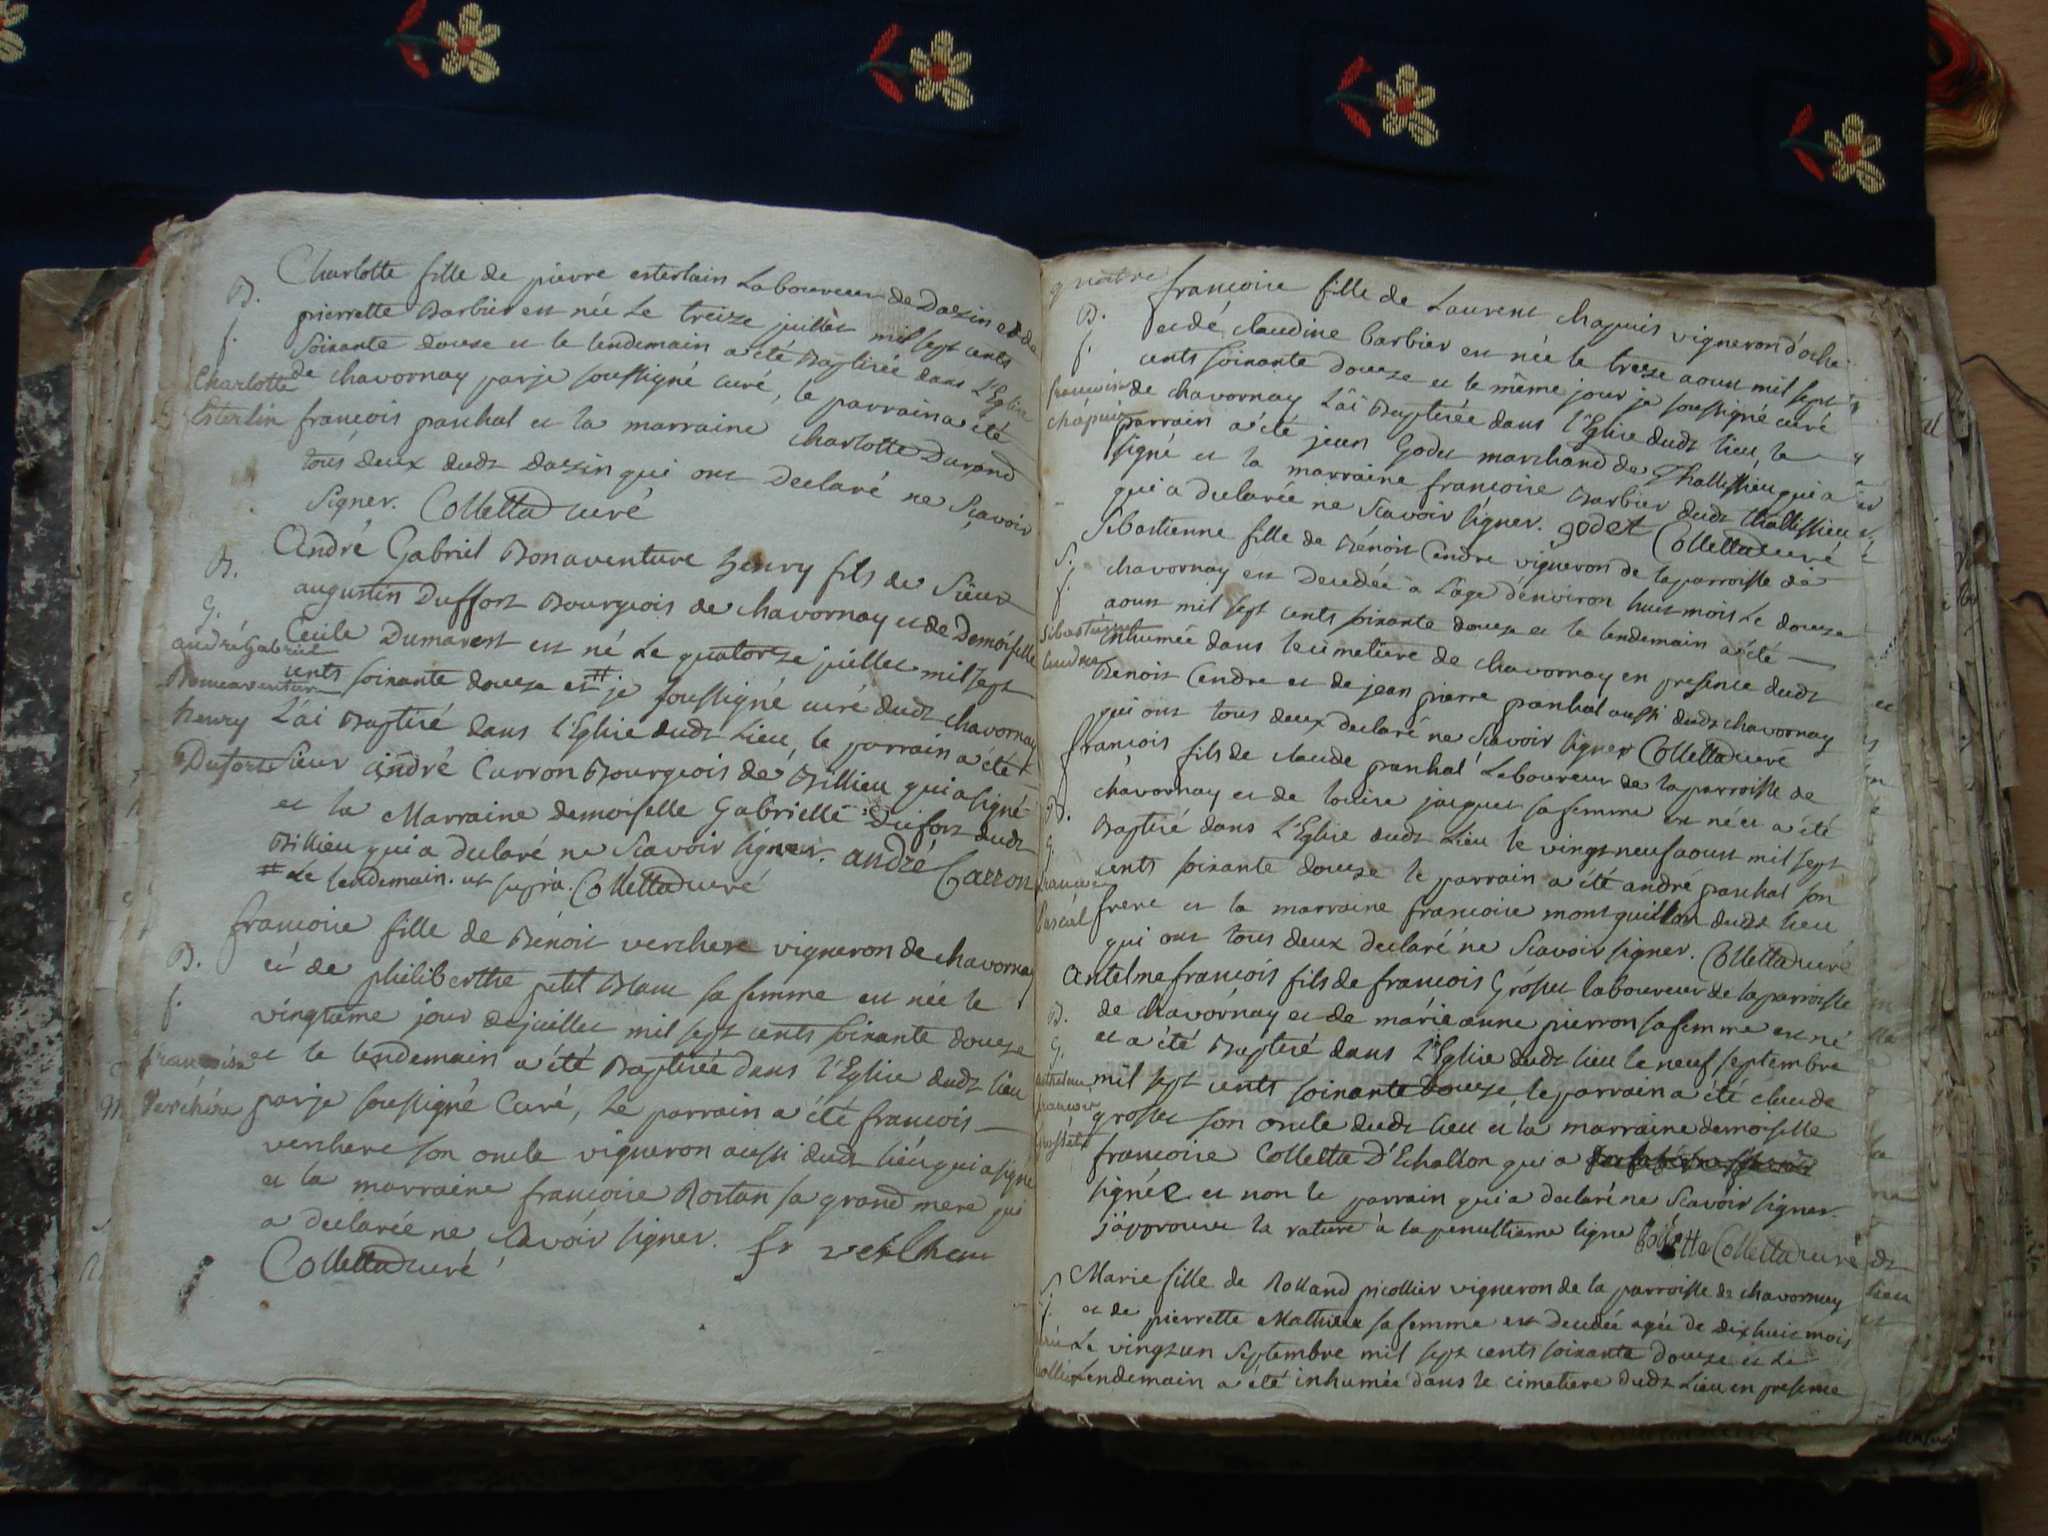 Charlotte fille de pierre esterlain Laboureur de Dazin et de
B. pierrette Barbier est née Le treize juillet mil sept cents
f. Soixante douze et le lendemain a été Baptisée dans L'Eglise
Charlotte de chavornay par je soussigné curé, le parrain a été
Esterlin françois paschal et la marraine charlotte Durand
tous deux dudt Dazin qui ont Declaré ne Scavoir
Signer. Colletta curé
André Gabriel Bonaventure henry fils de Sieur
B. augustin Duffort Bourgeois de chavornay et de Demoiselle
G. Cecile Dumarest est né Le quatorze juillet mil sept
andré Gabriel cents soixante douze et # je soussigné curé dudt chavornay
Boneaventure
henry L'ai Baptisé dans l'Eglise dudt Lieu, le parrain a été
Dufort Sieur andré Carron Bourgeois de Billieu qui a signé
et la Marraine demoiselle Gabrielle Duffort dudt
Billieu qui a declaré ne Scavoir signer. andré Carron
# Le lendemain. ut supra. Colletta curé
françoise fille de Bénoit verchere vigneron de chavornay
B. et de philiberthe petit Blanc sa femme est née le
f. vingtieme jour de juillet mil sept cents soixante douze
françoise et le lendemain a été Baptisée dans l'Eglise dudt lieu
Verchére par je soussigné Curé, Le parrain a été françois
verchere son oncle vigneron aussi dudt liéu qui a signé
et la marraine françoise Rostan sa grand mere qui
a declarée ne Scavoir signer. fr verchere
Colletta curé
quatre françoise fille de Laurent chapuis vigneron d'
B. et de claudine barbier est née le treize aoust mil sept
f. cents soixante douze et le même jour je soussigné curé
françoise de chavornay L'ai Baptisée dans l'Eglise dudt lieu, le
chapuis parrain a été jean Godet marchand de Thallissieu qui a
signé et la marraine françoise Barbier dudt thallissieu
qui a declarée ne Scavoir signer. godet Colletta curé
S. Sebastienne fille de Bénoit Cendre vigneron de la parroisse de
f. chavornay est Decedée à L'age d'environ huit mois Le douze
aoust mil sept cents soixante douze et le lendemain a été
Sebastienne inhumée dans le cimetiere de chavornay en presence dudt
Cendre Benoit Cendre et de jean pierre paschal aussi dudt chavornay
qui ont tous deux declaré ne Scavoir signer Colletta curé
françois fils de claude paschal Laboureur de la parroisse de
chavornay et de louise jacquet sa femme est né et a été
B. Baptisé dans L'Eglise dudt Lieu le vingt neuf aoust mil sept
G. cents soixante douze le parrain a été andré paschal son
françois
Pascal frere et la marraine françoise montguillon dudt lieu
qui ont tous deux declaré ne Scavoir signer. Colletta curé
Antelme françois fils de françois Grosset laboureur de la parroisse
B. de chavornay et de marie anne pierron sa femme est né
G. et a été Baptisé dans l'Eglise dudt lieu le neuf septembre
anthelme mil sept cents soixante douze le parrain a été claude
françois
Grosset grosset son oncle dudt lieu et la marraine demoiselle
françoise Colletta d'Echallon qui a
signée et non le parrain qui a declaré ne Scavoir signer.
j'approuve la rature à la penultieme ligne Colletta curé
S. Marie fille de Rolland picollier vigneron de la parroisse de chavornay
f. et de pierrette Mathieu sa femme est decedée agée de dix huit mois
Le vingt un Septembre mil sept cents soixante douze et Le
Lendemain a été inhumée dans le cimetiere dudt Lieu en presence